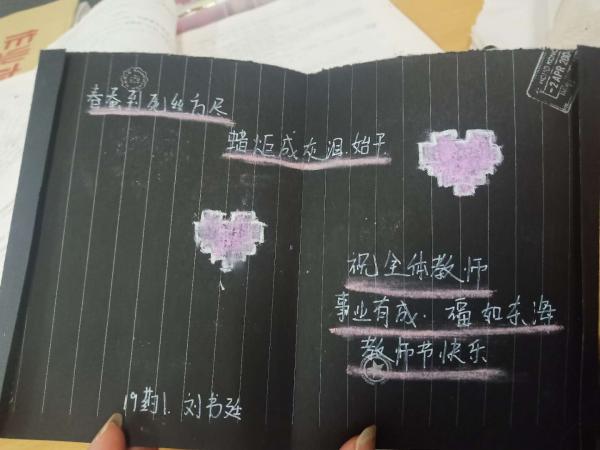 春蚕到死丝方尽
蜡炬成灰泪.始干
祝全体教师
事业有成.福如东海
教师节快乐
19药1.刘书廷
-2 APR